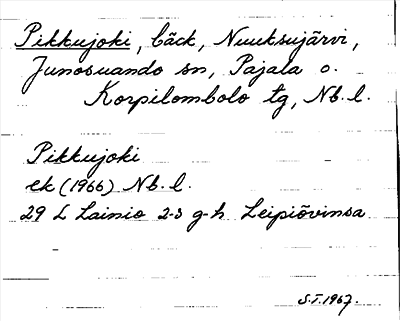 Pikkujoki, bäck, Nuuksujärvi,
Junosuando sn, Pajala o.
Korpilombolo tg, Nb. l.
Pikkujoki
ek (1966) Nb. l.
29 L Lainio 2-3 g-h Leipiövinsa
S.I. 1967.